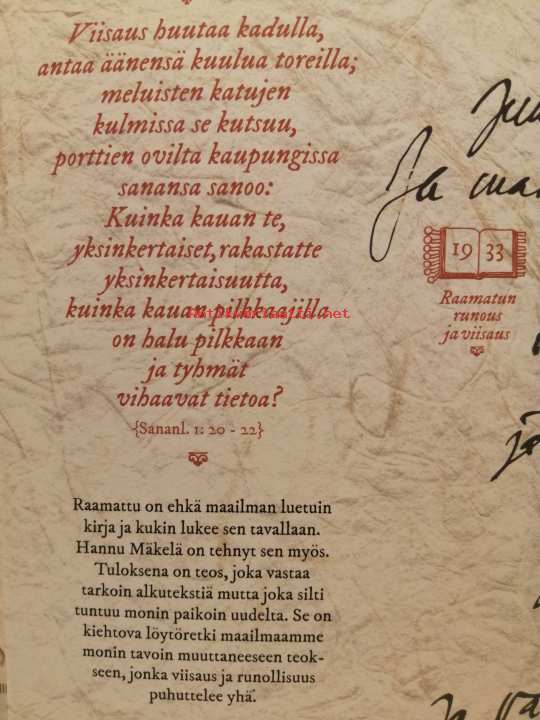 Viisaus huutaa kadulla,
antaa äänensä kuulua toreilla;
meluisten katujen
kulmissa se kutsuu,
porttien ovilta kaupungissa
sanansa sanoo:
Kuinka kauan te,
yksinkertaiset, rakastatte
yksinkertaisuutta,
kuinka kauan pilkkaajilla
on halu pilkkaan
ja tyhmät
vihaavat tietoa?
{Sananl. 1: 20 - 22}
Raamattu on ehkä maailman luetuin
kirja ja kukin lukee sen tavallaan.
Hannu Mäkelä on tehnyt sen myös.
Tuloksena on teos, joka vastaa
tarkoin alkutekstiä mutta joka silti
tuntuu monin paikoin uudelta. Se on
kiehtova löytöretki maailmaamme
monin tavoin muuttaneeseen teok-
seen, jonka viisaus ja runollisuus
puhuttelee yhä.
Ja
1933
Raamatun
runous
ja viisaus